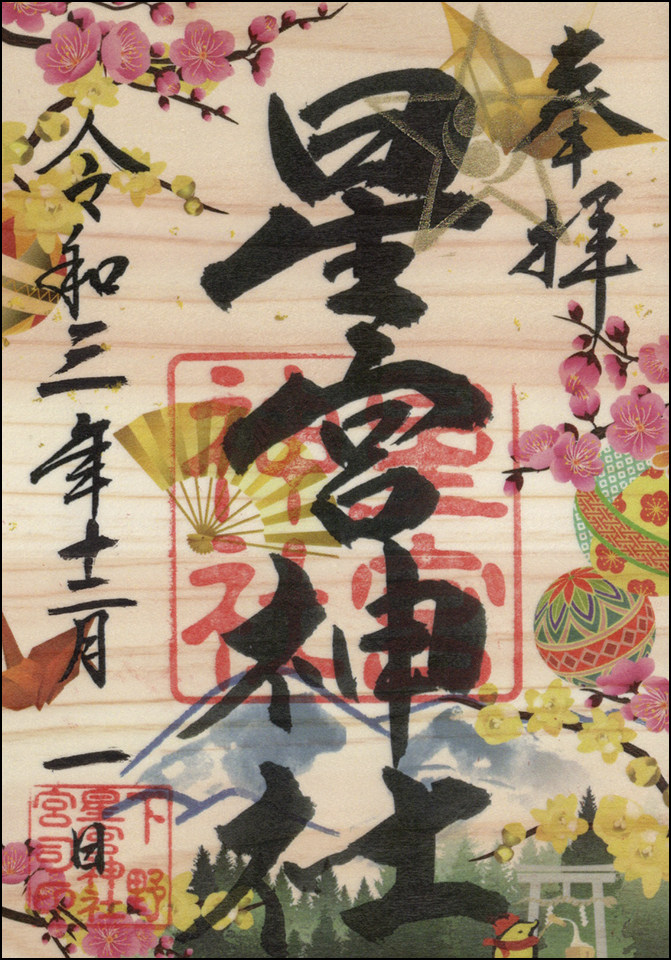 奉拝
星宮神社
令和三年十二月一日
星宮神社
下野星宮神社宮司印